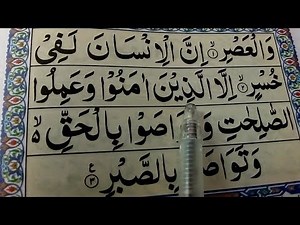 وَالْعَصْرِ ۙ‏﴿۱﴾ اِنَّ الْاِنْسَانَ لَفِیْ
خُسْرٍ ۙ‏﴿۲﴾ اِلَّا الَّذِیْنَ اٰمَنُوْا وَعَمِلُوا
الصّٰلِحٰتِ وَتَوَاصَوْا بِالْحَقِّ ۙ۬
وَتَوَاصَوْا بِالصَّبْرِ ﴿۳﴾